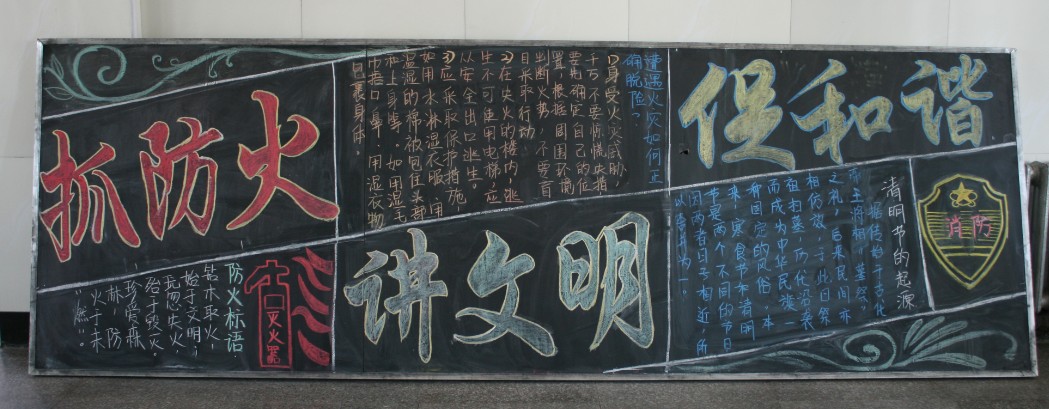 抓防火
遭遇火灾如何正
确脱险?
1)身受火灾威胁,
千万不要惊慌失措
要先确定自己的位
置,根据周围环境
判断火势,不要盲
目采取行动。
2)在失火的楼内,逃
生不可使用电梯,应
以安全出口逃生。
3)应采取保护措施,
如用水淋湿衣服、用
湿湿的棉被包住头部
和上身等。如用湿毛
巾捂口鼻,用湿衣物
包裹身体。
促和谐
防火标语
钻木取火,
始于文明;
玩忽失火,
于火.
珍爱森
林,防
火于未
“燃”。
灭火器
讲文明
清明节的起源
据传始于古代
帝王将相“墓祭”
之礼,后来民间亦
相仿效,于此日祭
祖扫墓,历代沿袭
而成为中华民族一
种固定的风俗。本
来,寒食节与清明
节是两个不同的节日
因两者日子相近,所
以合并为一。
消防